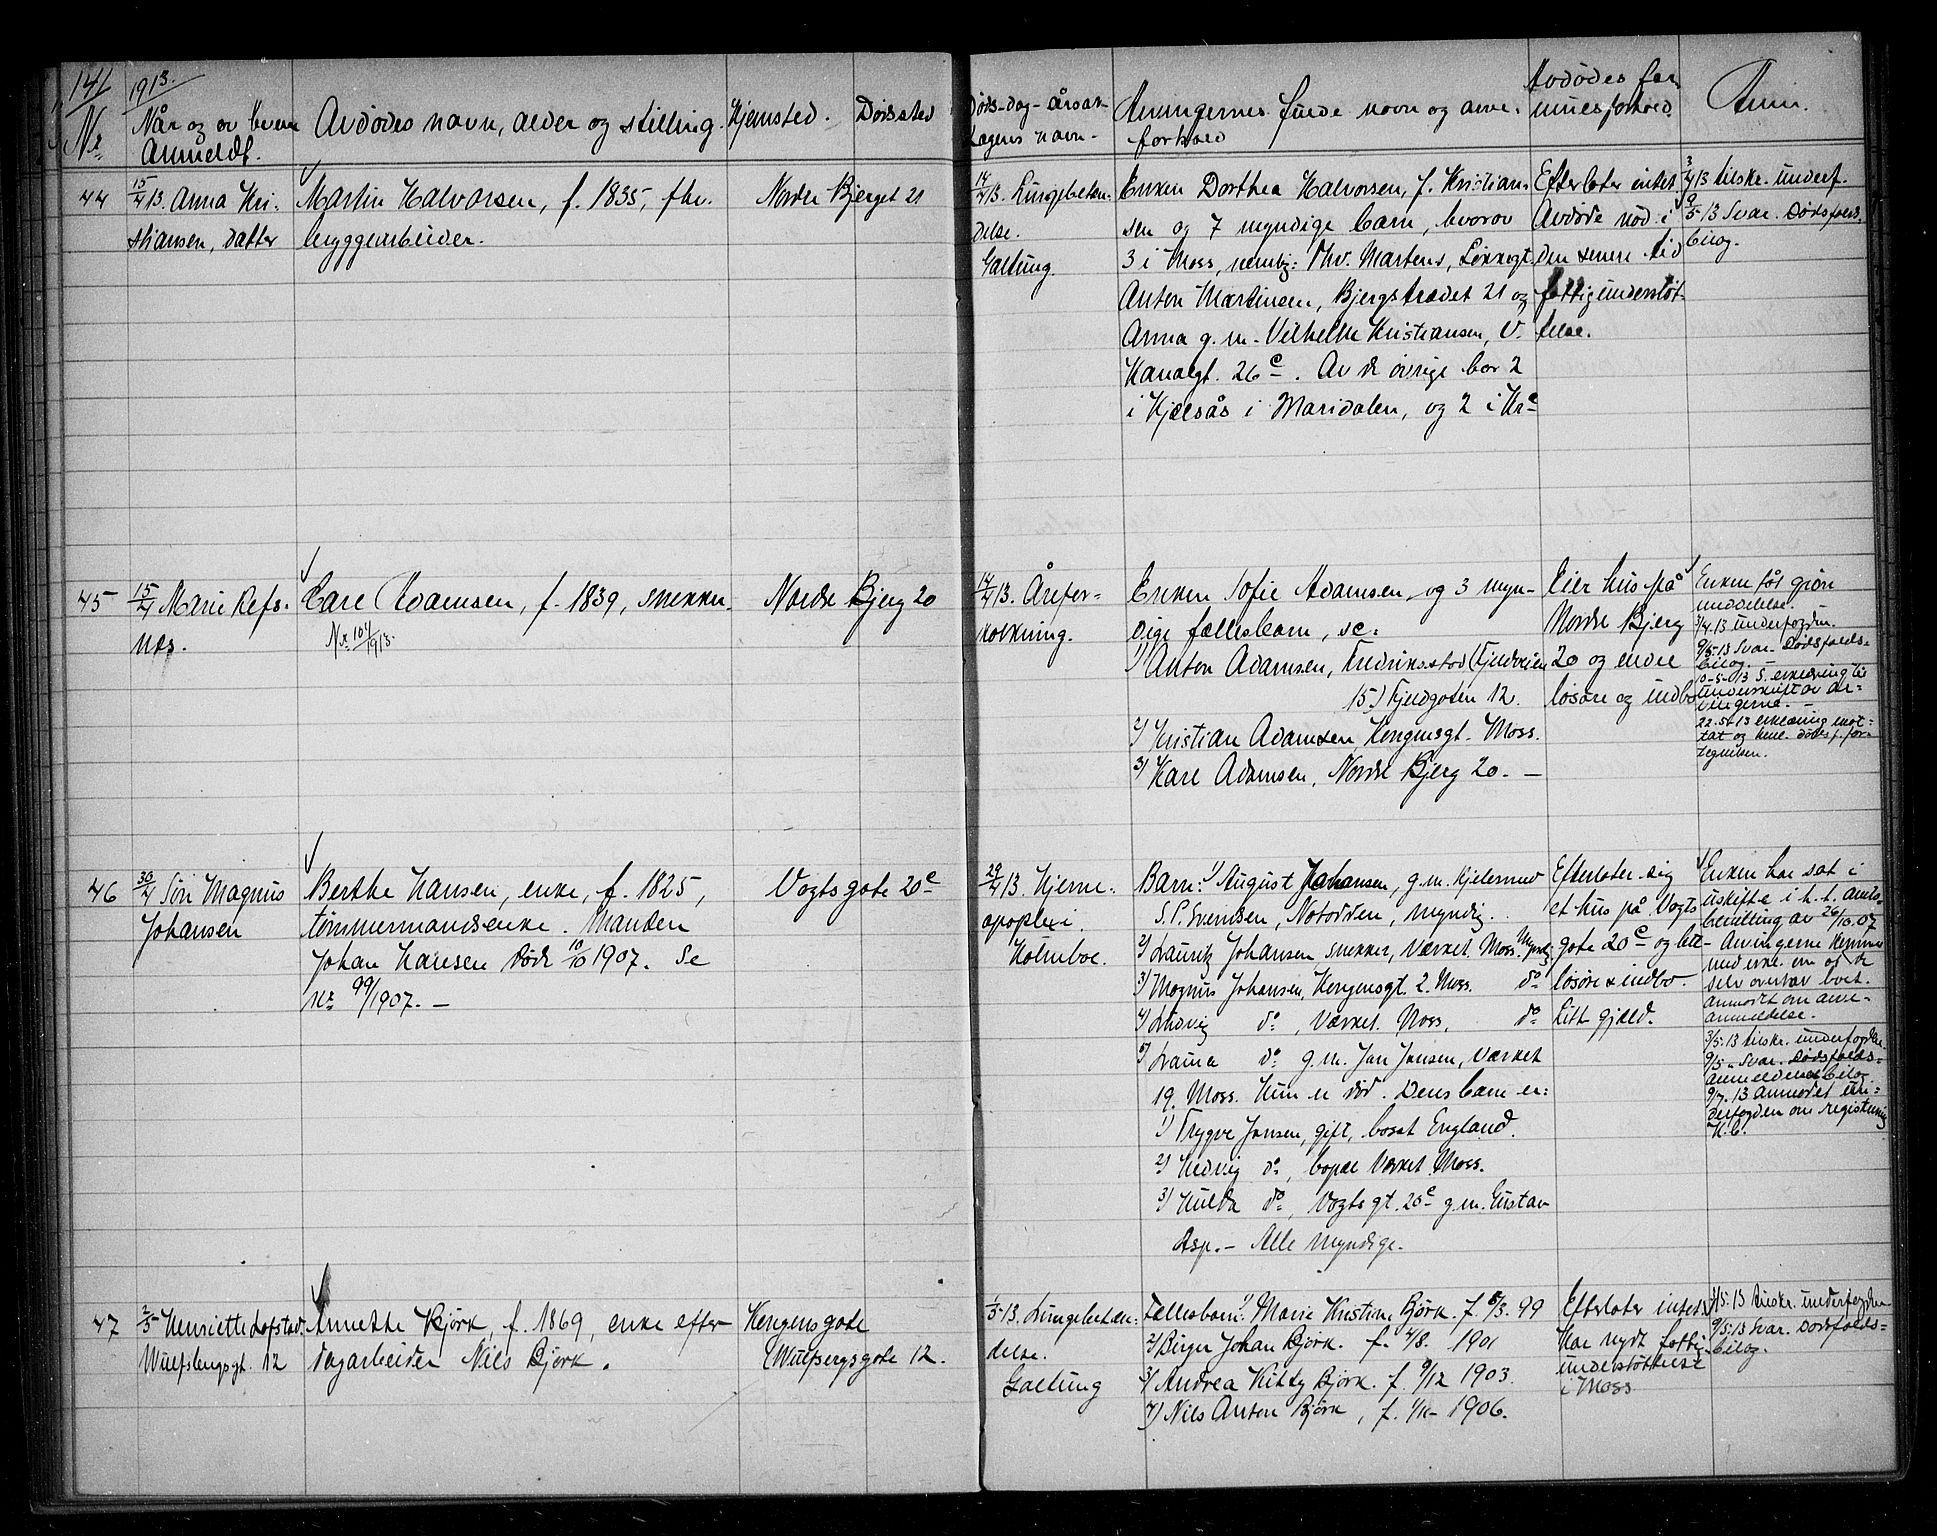 141
1913.
Nr.
Når og av hvem
Anmeldt.
Avdødes navn, alder og stilling.
Hjemsted.
Dødssted
Døds-dag- årsak-
Lægens navn-
Arvingernes fulde navn og arve-
forhold
Avdødes for
muesforhold.
Anm.
44
15/4 13. Anna Kri-
stiansen, datter
Martin Halvorsen, f. 1835, fhv.
bryggearbeider.
Nordre Bjerget 21
14/4 13. Lungebeten-
delse.
Galtung.
Enken Dorthea Halvorsen, f. Kristian-
sen og 7 myndige barn, hvorav
3 i Moss, nemlig: Thv. Martens,
Anton Martinsen, Bjergstrædet 21 og
Anna g. m. Vilhelm Kristiansen, V.
Kanalgt. 26c. Av de øvrige bor 2
i Kjelsås i Maridalen, og 2 i Kra
Efterlater intet
Avdøde nød i
den senere tid
fattigunderstøt-
telse.
3/4 13 tilskr. underf.
9/5-13 Svar. Dødsfalds-
bilag.
45
15/4 Marie Refs-
nes.
Carl Adamsen, f. 1839, snekker.
Nr 104/1913.
Nordre Bjerg 20
14/4 13. Årefor-
kalkning.
Enken Sofie Adamsen og 3 myn-
dige fællesbarn, se:
1) Anton Adamsen, Fredriksstad (Fjeldveien
15) Fjeldgaten 12.
2) Kristian Adamsen, Kongensgt. Moss.
3) Karl Adamsen, Nordre Bjerg 20. —
Eier hus på
Nordre Bjerg
20 og endel
løsøre og indbo
Enken får gjøre
meddelelse.
3/4.13 underfogden.
9/5-13 Svar. Dødsfalds-
bilag. —
10-5-13 S. erklæring til
underskrift av ar-
vingerne. —
22.5.13 erklæring mot-
tat og hele dødsf. for-
tegnelsen.
46
30/4 Søn Magnus
Johansen
Berthe Hansen, enke, f. 1825,
tømmermandsenke. Manden
Johan Hansen døde 10/10 1907. Se
nr 99/1907. —
Vogts gate 20c
29/4 13. Hjerne-
apoplexi.
Holmboe.
Barn: 1) August Johansen, g. m. Kjelersmed
S. P. Svendsen, Notodden, myndig.
2) Lauritz Johansen, snekker, Værket. Moss. Myndig
3) Magnus Johansen, Kongensgt. 2. Moss. do
4) Ludvig do, Værket. Moss. do
5) Laura do g. m. Jan Jansen, Værket
19. Moss. Hun er død. Dens barn er:
1) Trygve Jansen, gift, bosat England.
2) Hedvig do, bopæl Værket Moss.
3) Hulda do, Vogtsgt. 20c g. m. Gustav
Asp. — Alle myndige.
Efterlater sig
et hus på Vogts
gate 20c og litt
løsøre & indbo.
Litt gjæld.
Enken har sat i
uskifte i h. t. amts-
bevilling av 26/10.07
— Arvingerne kommer
med erkl. om og de
selv overtar boet.
anmodt om arve-
anmeldelse.
3/5.13 tilskr. underfogden.
9/5 „ Svar. Dødsfalds-
anmeldelses bilag
9/7.13 Anmodet un-
derfogden om registrering
K. b.
47
2/5 Henriette Lofstad.
Wulfsbergsgt. 12
Annette Bjørk, f. 1869, enke efter
dagarbeider Nils Bjørk.
Kongensgate
Wulfsbergsgate 12.
1/5-13. Lungebetæn-
delse.
Galtung
Fellesbarn: 1) Marie Kristine Bjørk. f. 8/3. 99
2) Birger Johan Bjørk. f. 4/8. 1901
3) Andrea Kitty Bjørk. f. 9/12 1903.
4) Nils Anton Bjørk, f. 1/11- 1906.
Efterlater intet.
Har nydt fattig-
understøttelse
i Moss
3/5.13 tilskr. underfogden
9/5.13 Svar. Dødsfalds-
bilag.